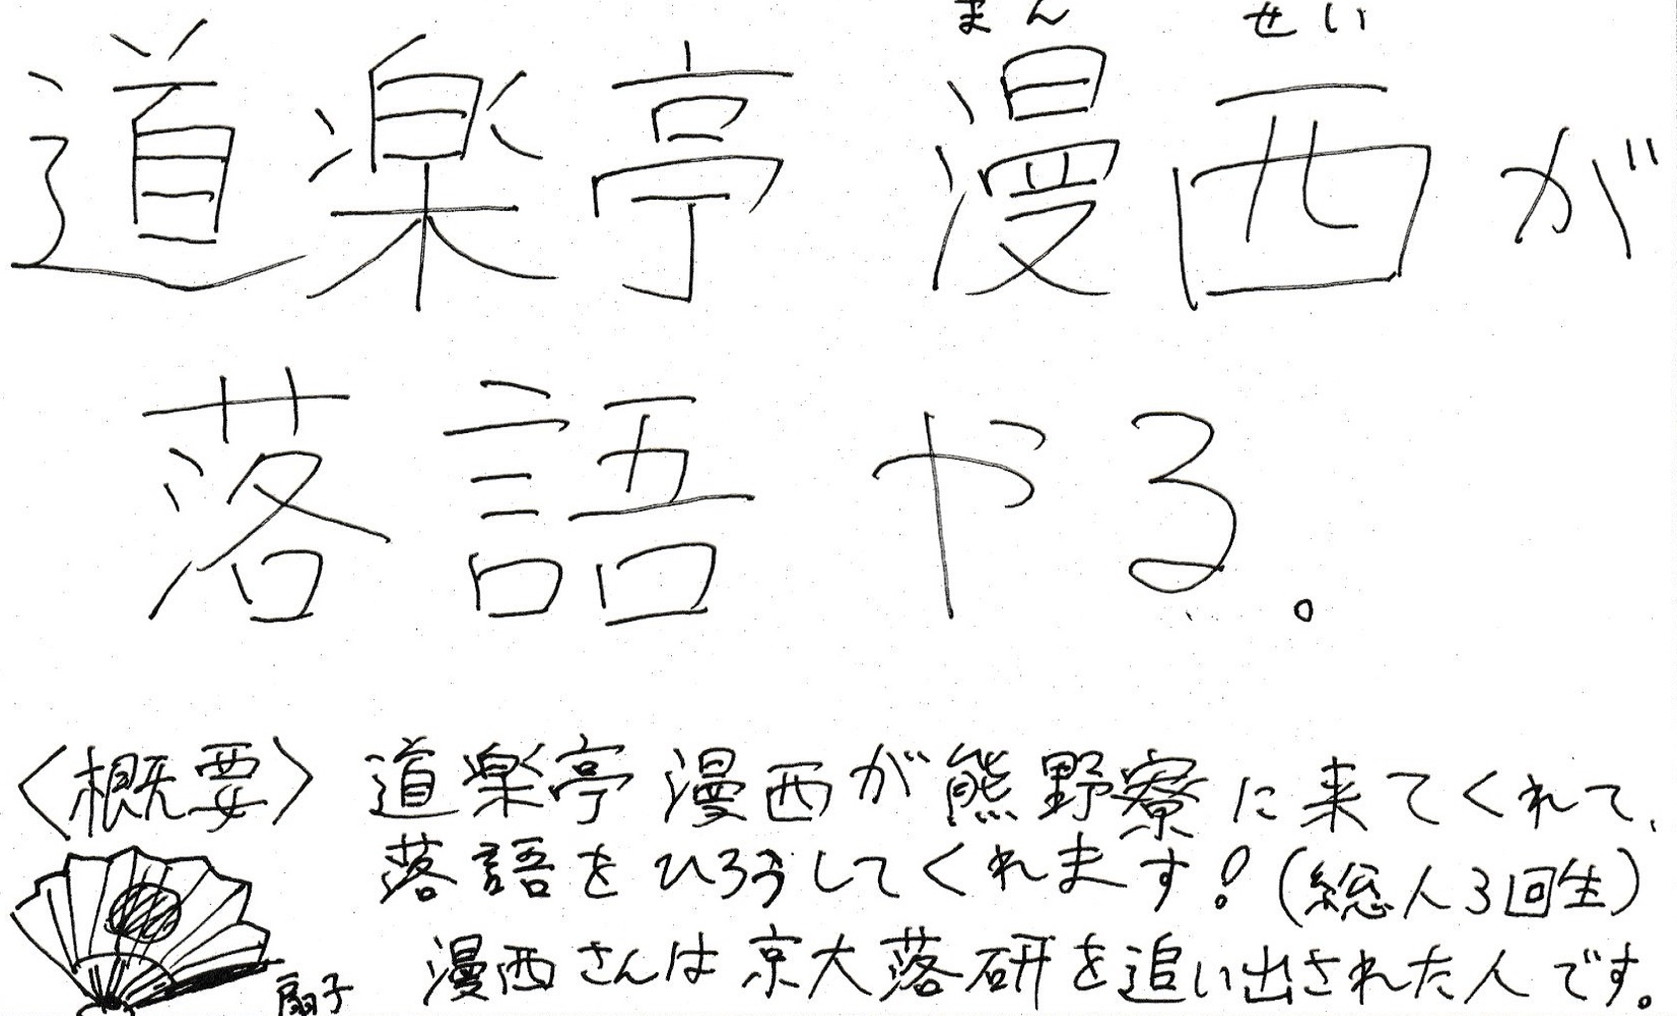 まんせい
道楽亭 漫西が
落語やる。
〈概要〉 道楽亭 漫西が熊野寮に来てくれて、
落語をひろうしてくれます!(総人3回生)
漫西さんは京大落研を追い出された人です。
扇子